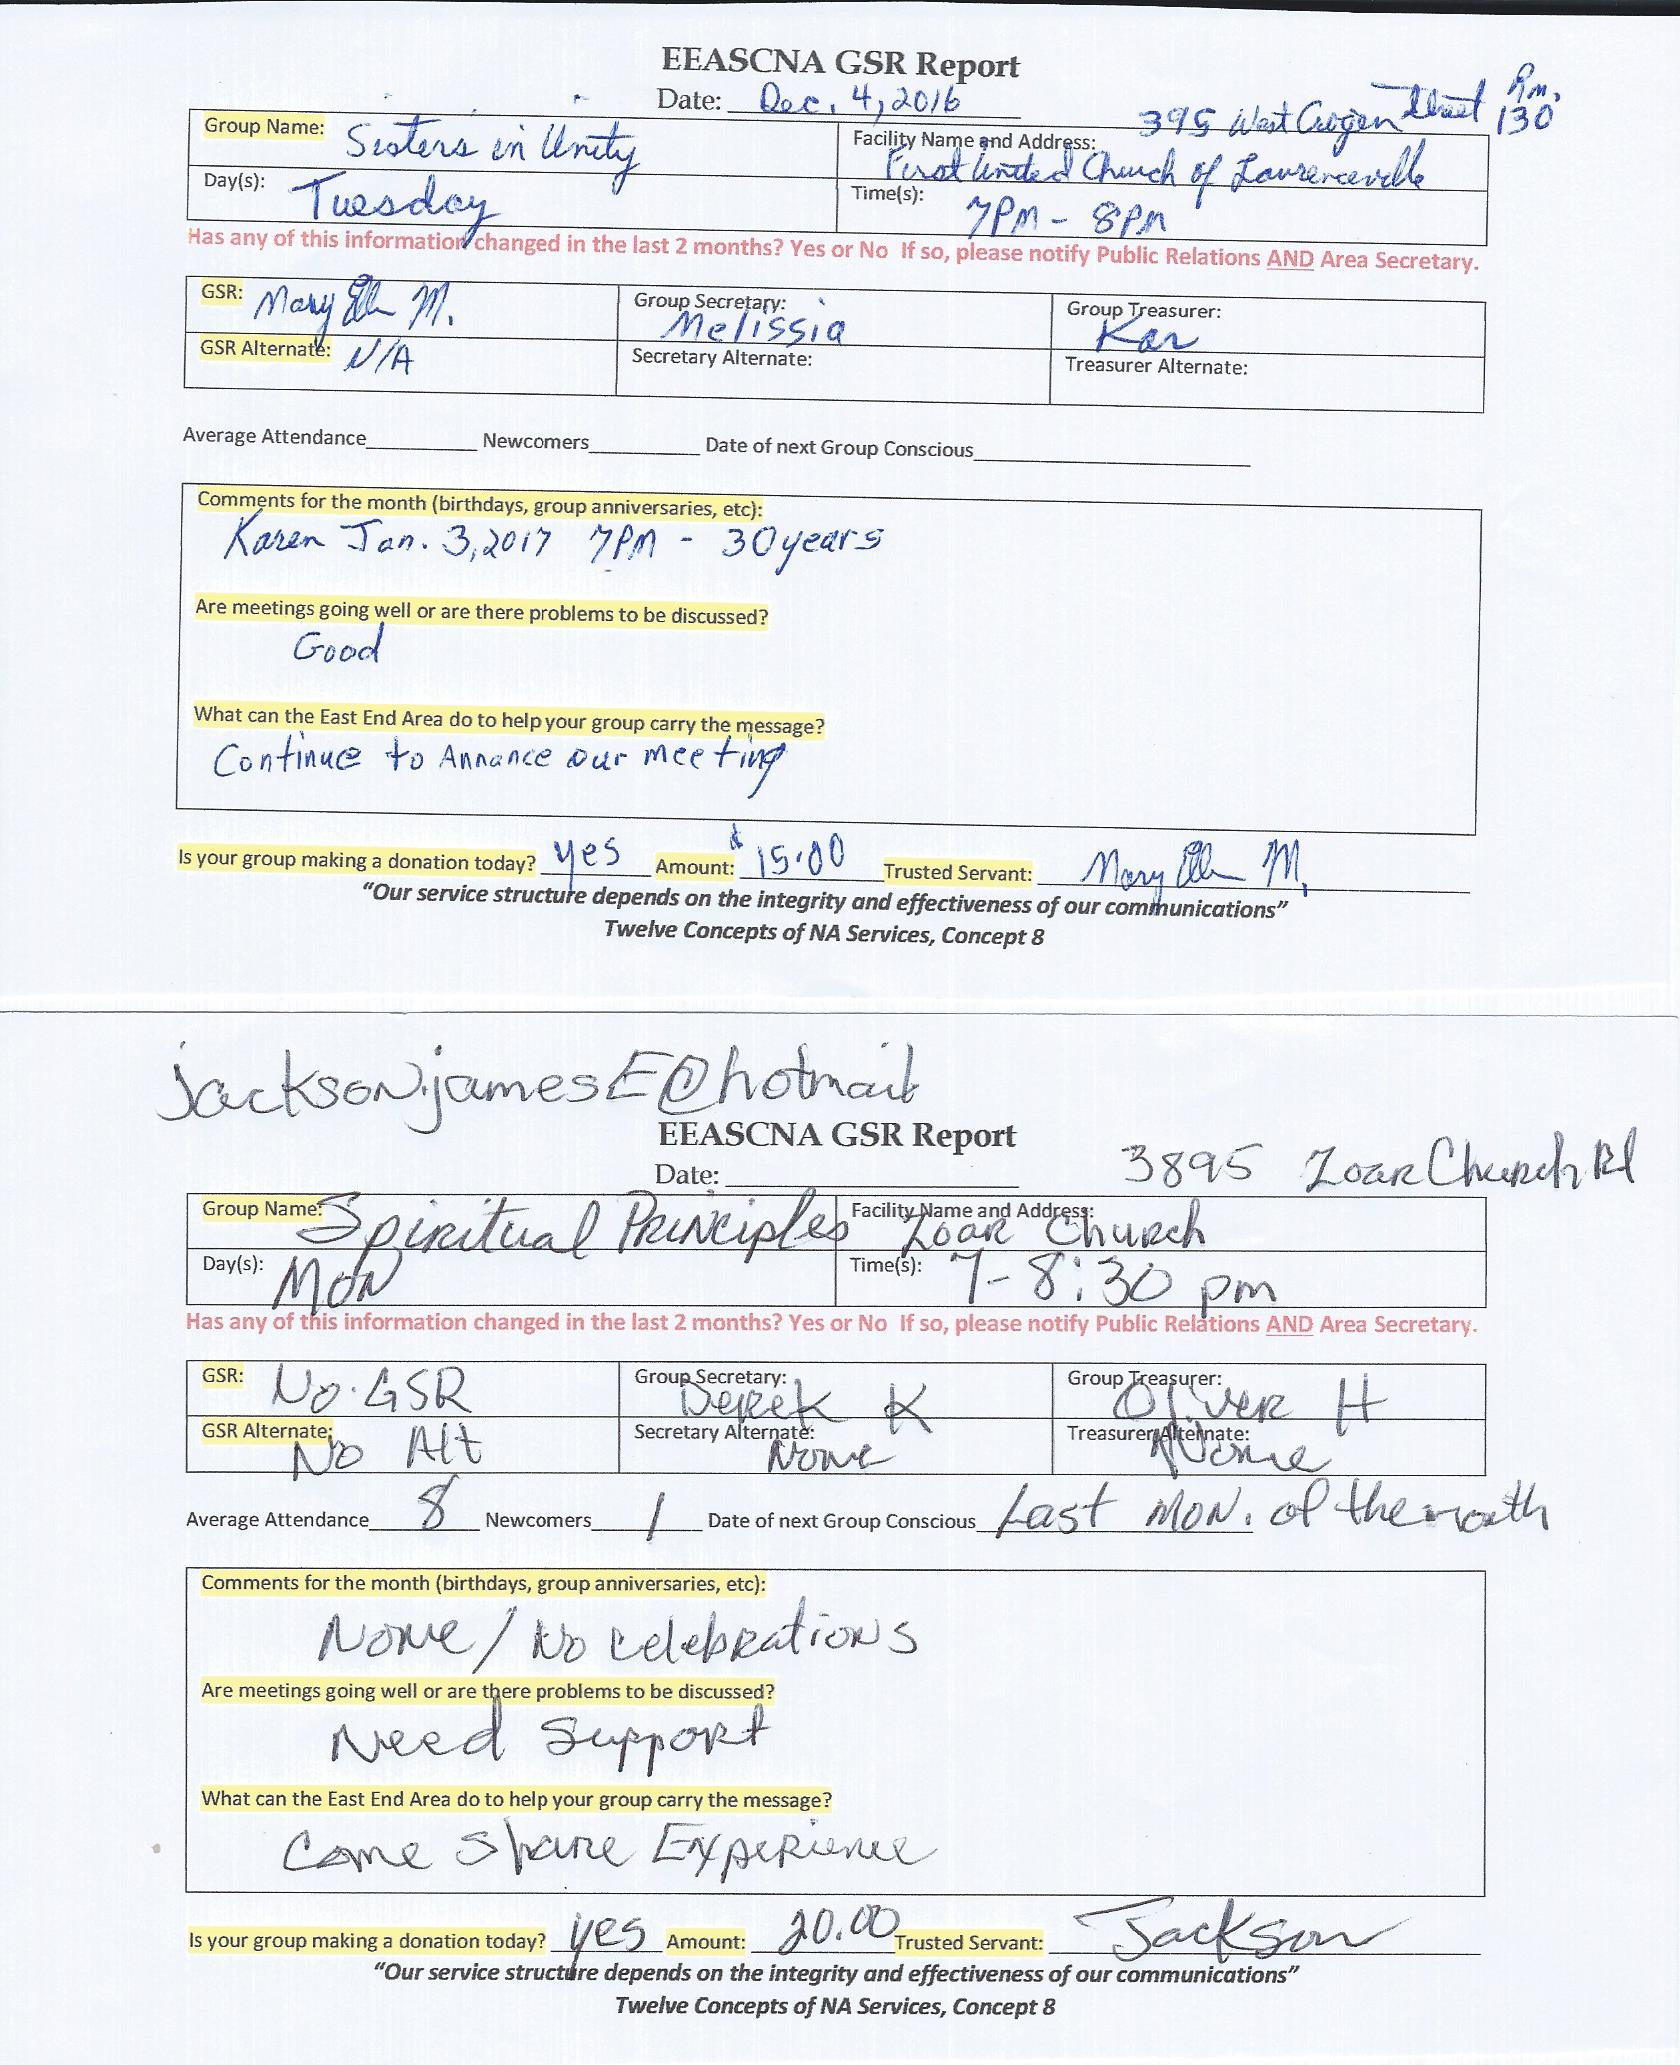 EEASCNA GSR Report
Date: Dec. 4, 2016
395 West Crogan Street Rm. 130
Group Name: Sisters in Unity
Facility Name and Address: First United Church of Lawrenceville
Day(s): Tuesday
Time(s): 7PM - 8PM
Has any of this information changed in the last 2 months? Yes or No If so, please notify Public Relations AND Area Secretary.
GSR: Mary Ellen M.
Group Secretary: Melissia
Group Treasurer: Kar
GSR Alternate: N/A
Secretary Alternate:
Treasurer Alternate:
Average Attendance__________ Newcomers__________ Date of next Group Conscious__________
Comments for the month (birthdays, group anniversaries, etc):
Karen Jan. 3, 2017 7PM - 30 years
Are meetings going well or are there problems to be discussed?
Good
What can the East End Area do to help your group carry the message?
Continue to Annance our meeting
Is your group making a donation today? yes Amount: $15.00 Trusted Servant: Mary Ellen M.
“Our service structure depends on the integrity and effectiveness of our communications”
Twelve Concepts of NA Services, Concept 8
jackson.jamesE@hotmail
EEASCNA GSR Report
Date:
3895 Zoar Church Rd
Group Name: Spiritual Principles
Facility Name and Address: Zoar Church
Day(s): Mon
Time(s): 7-8:30 pm
Has any of this information changed in the last 2 months? Yes or No If so, please notify Public Relations AND Area Secretary.
GSR: No GSR
Group Secretary: Derek K
Group Treasurer: Oliver H
GSR Alternate: No Alt
Secretary Alternate: None
Treasurer Alternate: None
Average Attendance 8 Newcomers 1 Date of next Group Conscious Last Mon. of the month
Comments for the month (birthdays, group anniversaries, etc):
None / No celebrations
Are meetings going well or are there problems to be discussed?
Need Support
What can the East End Area do to help your group carry the message?
Come Share Experience
Is your group making a donation today? yes Amount: 20.00 Trusted Servant: Jackson
“Our service structure depends on the integrity and effectiveness of our communications”
Twelve Concepts of NA Services, Concept 8